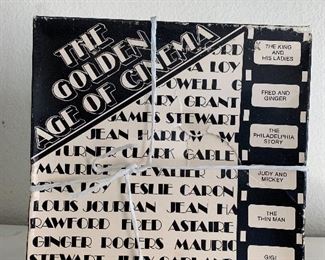 THE
GOLDEN
AGE OF CINEMA
ORD
NA LOY
OWELL G
ARY GRANT
JAMES STEWART
JEAN HARLOW
TURNER CLARK GABLE
MAURICE CHEVALIER JO
NA LOY LESLIE CARON
LOUIS JOURDAN JEAN HA
RAWFORD FRED ASTAIRE
GINGER ROGERS MAURIC
STEWART JUDY GARLAND
THE KING
AND
HIS LADIES
FRED AND
GINGER
THE
PHILADELPHIA
STORY
JUDY AND
MICKEY
THE
THIN MAN
GIGI